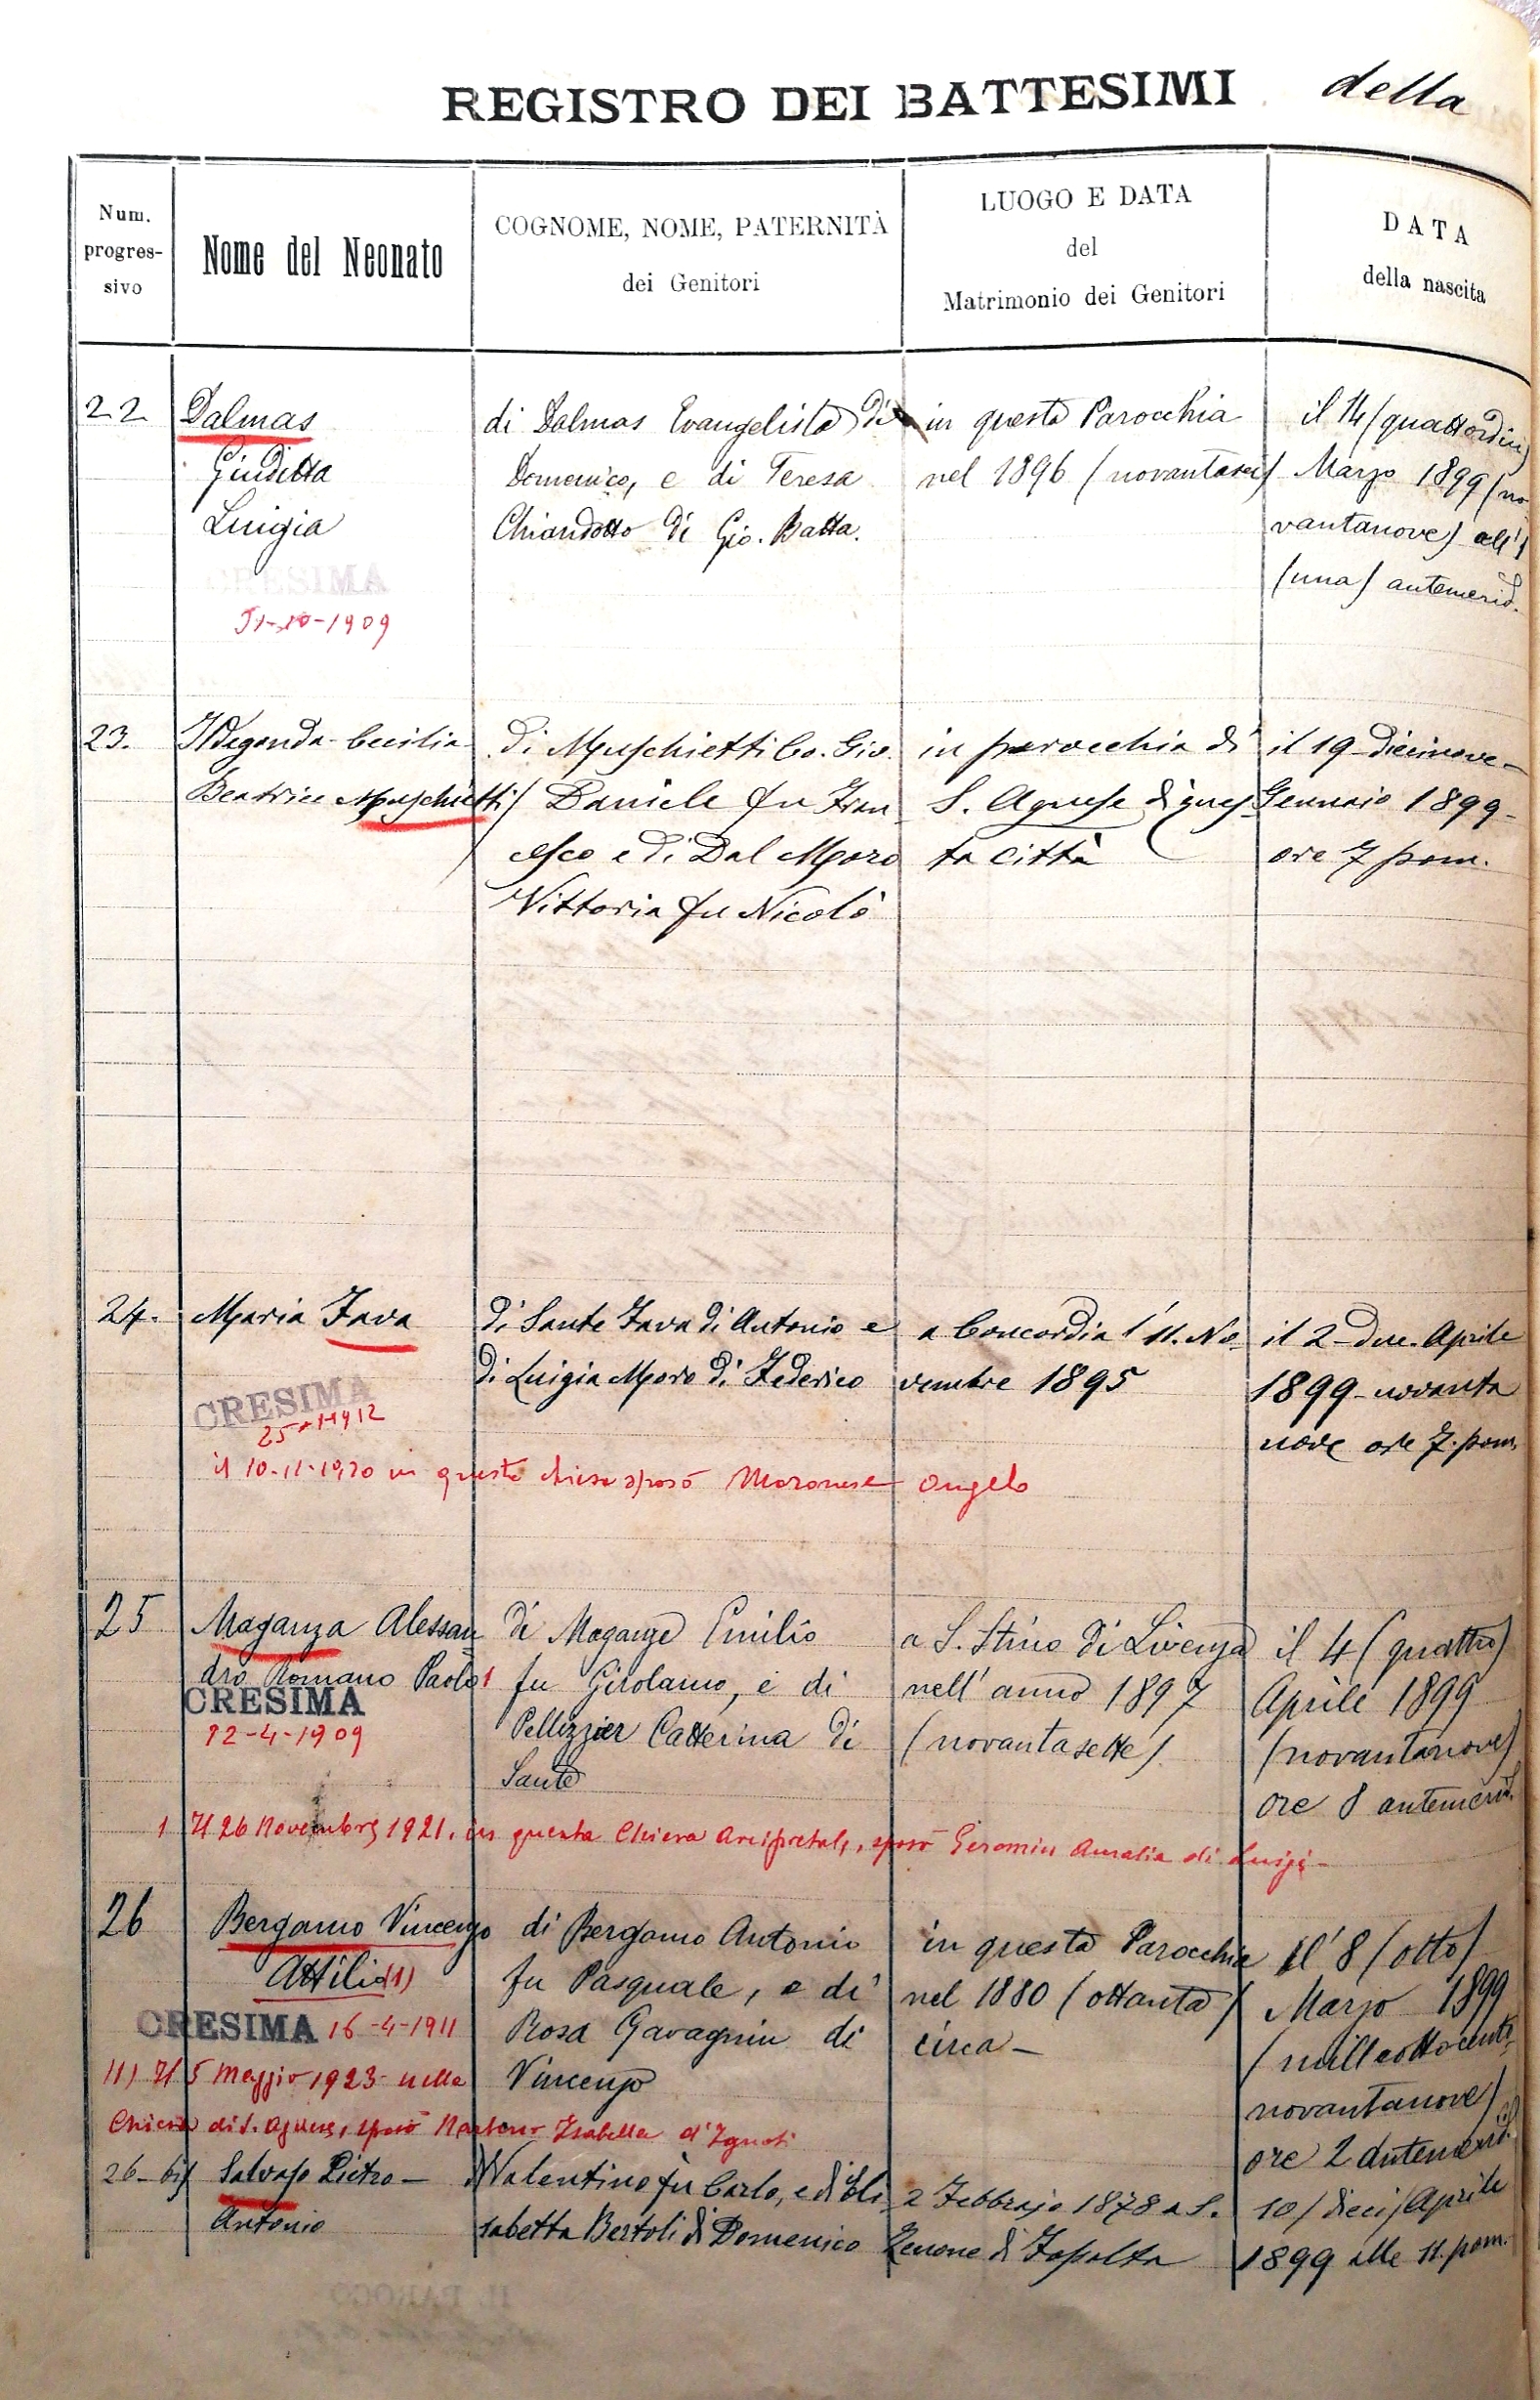 REGISTRO DEI BATTESIMI della
Num.
progres-
sivo
Nome del Neonato
COGNOME, NOME, PATERNITÀ
dei Genitori
LUOGO E DATA
del
Matrimonio dei Genitori
DATA
della nascita
22
Dalmas
Giuditta
Luigia
CRESIMA
-1909
di Dalmas Evangelista di
Domenico, e di Teresa
Chiandotto di Gio. Batta.
in questa Parocchia
nel 1896 (novantasei)
il 14 (quattordici)
Marzo 1899 (no
vantanove) all'1
(una) antemerid.
23.
Ildegonda Cecilia
Beatrice Muschietti
di Muschietti Co. Gio.
Daniele fu Fran
cesco e di Dal Moro
Vittoria fu Nicolò
in parocchia di
S. Agnese di ques
ta città
il 19 diecinove
Gennaio 1899
ore 7 pom.
24.
Maria Fava
CRESIMA
1912
di Sante Fava di Antonio e
di Luigia Moro di Federico
a Concordia l'11. No
vembre 1895
il 2 due. Aprile
1899 novanta
nove ore 7. pom.
il 10-11-1920 in questa chiesa sposò Moronese Angelo
25
Maganza Alessan
dro Romano Paolo 1
CRESIMA
12-4-1909
di Maganza Emilio
fu Girolamo, e di
Pellizzier Catterina di
Sante
a S. Stino di Livenza
nell'anno 1897
(novantasette)
il 4 (quattro)
Aprile 1899
(novantanove)
ore 8 antemerid.
1 Il 26 Novembre 1921, in questa Chiesa Arcipretale, sposò Geromin Amalia di Luigi
26
Bergamo Vincenzo
Attilio (1)
CRESIMA 16-4-1911
di Bergamo Antonio
fu Pasquale, e di
Rosa Gavagnin di
Vincenzo
in questa Parocchia
nel 1880 (ottanta)
circa
il 8 (otto)
Marzo 1899
(milleottocento
novantanove)
ore 2 antemerid.
(1) Il 5 Maggio 1923 nella
Chiesa di S. Agnese, sposò Isabella d'Ignoti
26-bis
Salvaso Pietro
Antonio
Valentino fu Carlo, e di Eli
sabetta Bertoli di Domenico
2 Febbrajo 1878 a S.
Zenone di Fossalta
10 (dieci) Aprile
1899 alle 11. pom.